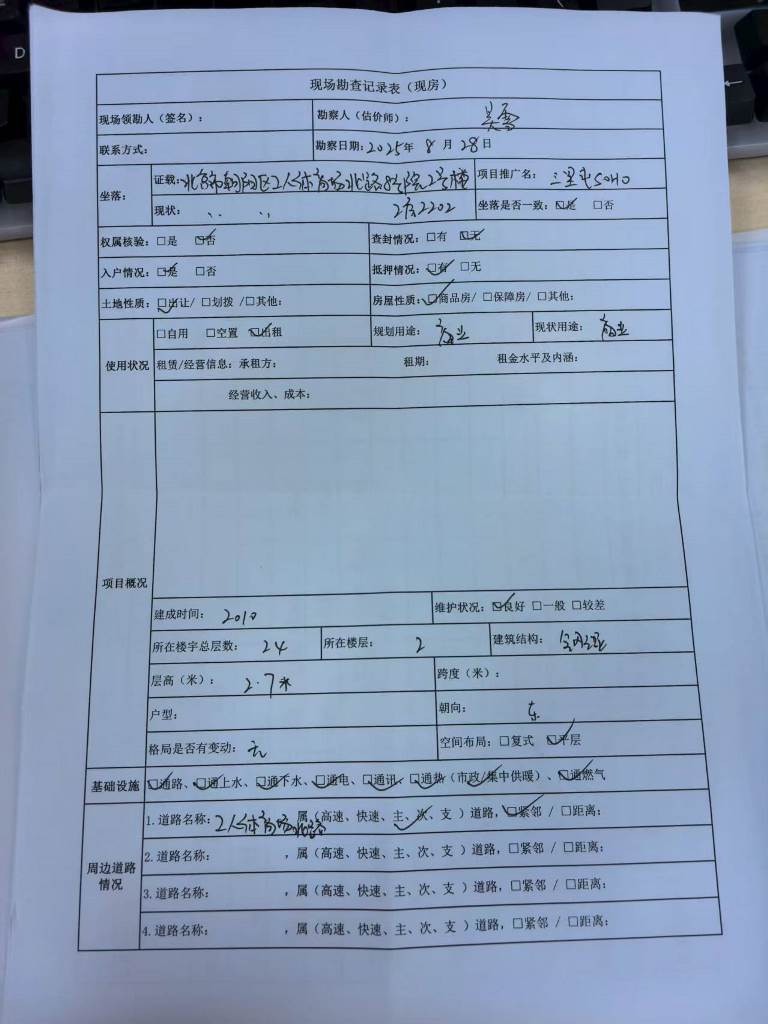 D
现场勘查记录表（现房）
现场领勘人（签名）： 勘察人（估价师）： 吴雪
联系方式： 勘察日期：2025年 8 月 28日
坐落： 证载：北京市朝阳区工人体育场北路8号院2号楼 项目推广名： 三里屯SOHO
现状： 〃 〃 2层2202 坐落是否一致：☑是 □否
权属核验：□是 ☑否 查封情况：□有 ☑无
入户情况：☑是 □否 抵押情况：☑有 □无
土地性质：☑出让/ □划拨 /□其他: 房屋性质：☑商品房/ □保障房/ □其他:
使用状况 □自用 □空置 ☑出租 规划用途： 商业 现状用途： 商业
租赁/经营信息：承租方： 租期： 租金水平及内涵:
经营收入、成本：
项目概况
建成时间： 2010 维护状况：☑良好 □一般 □较差
所在楼宇总层数： 24 所在楼层： 2 建筑结构：
层高（米）： 2.7米 跨度（米）：
户型： 朝向： 东
格局是否有变动： 无 空间布局：□复式 ☑平层
基础设施 ☑通路、☑通上水、☑通下水、☑通电、☑通讯、☑通热（市政/集中供暖）、☑通燃气
周边道路情况 1.道路名称：工人体育场北路 属（高速、快速、主、次、支 ）道路，☑紧邻 / □距离:
2.道路名称： ，属（高速、快速、主、次、支 ）道路，□紧邻 / □距离:
3.道路名称： ，属（高速、快速、主、次、支 ）道路，□紧邻 / □距离:
4.道路名称： ，属（高速、快速、主、次、支 ）道路，□紧邻 / □距离: